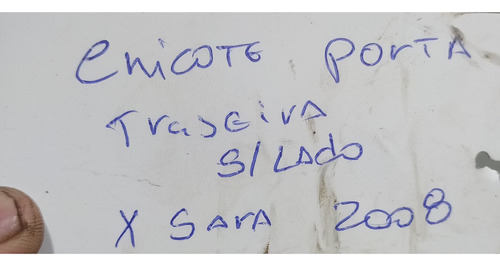 CHICOTE PORTA
TRASEIRA
S/LADO
X SARA 2008